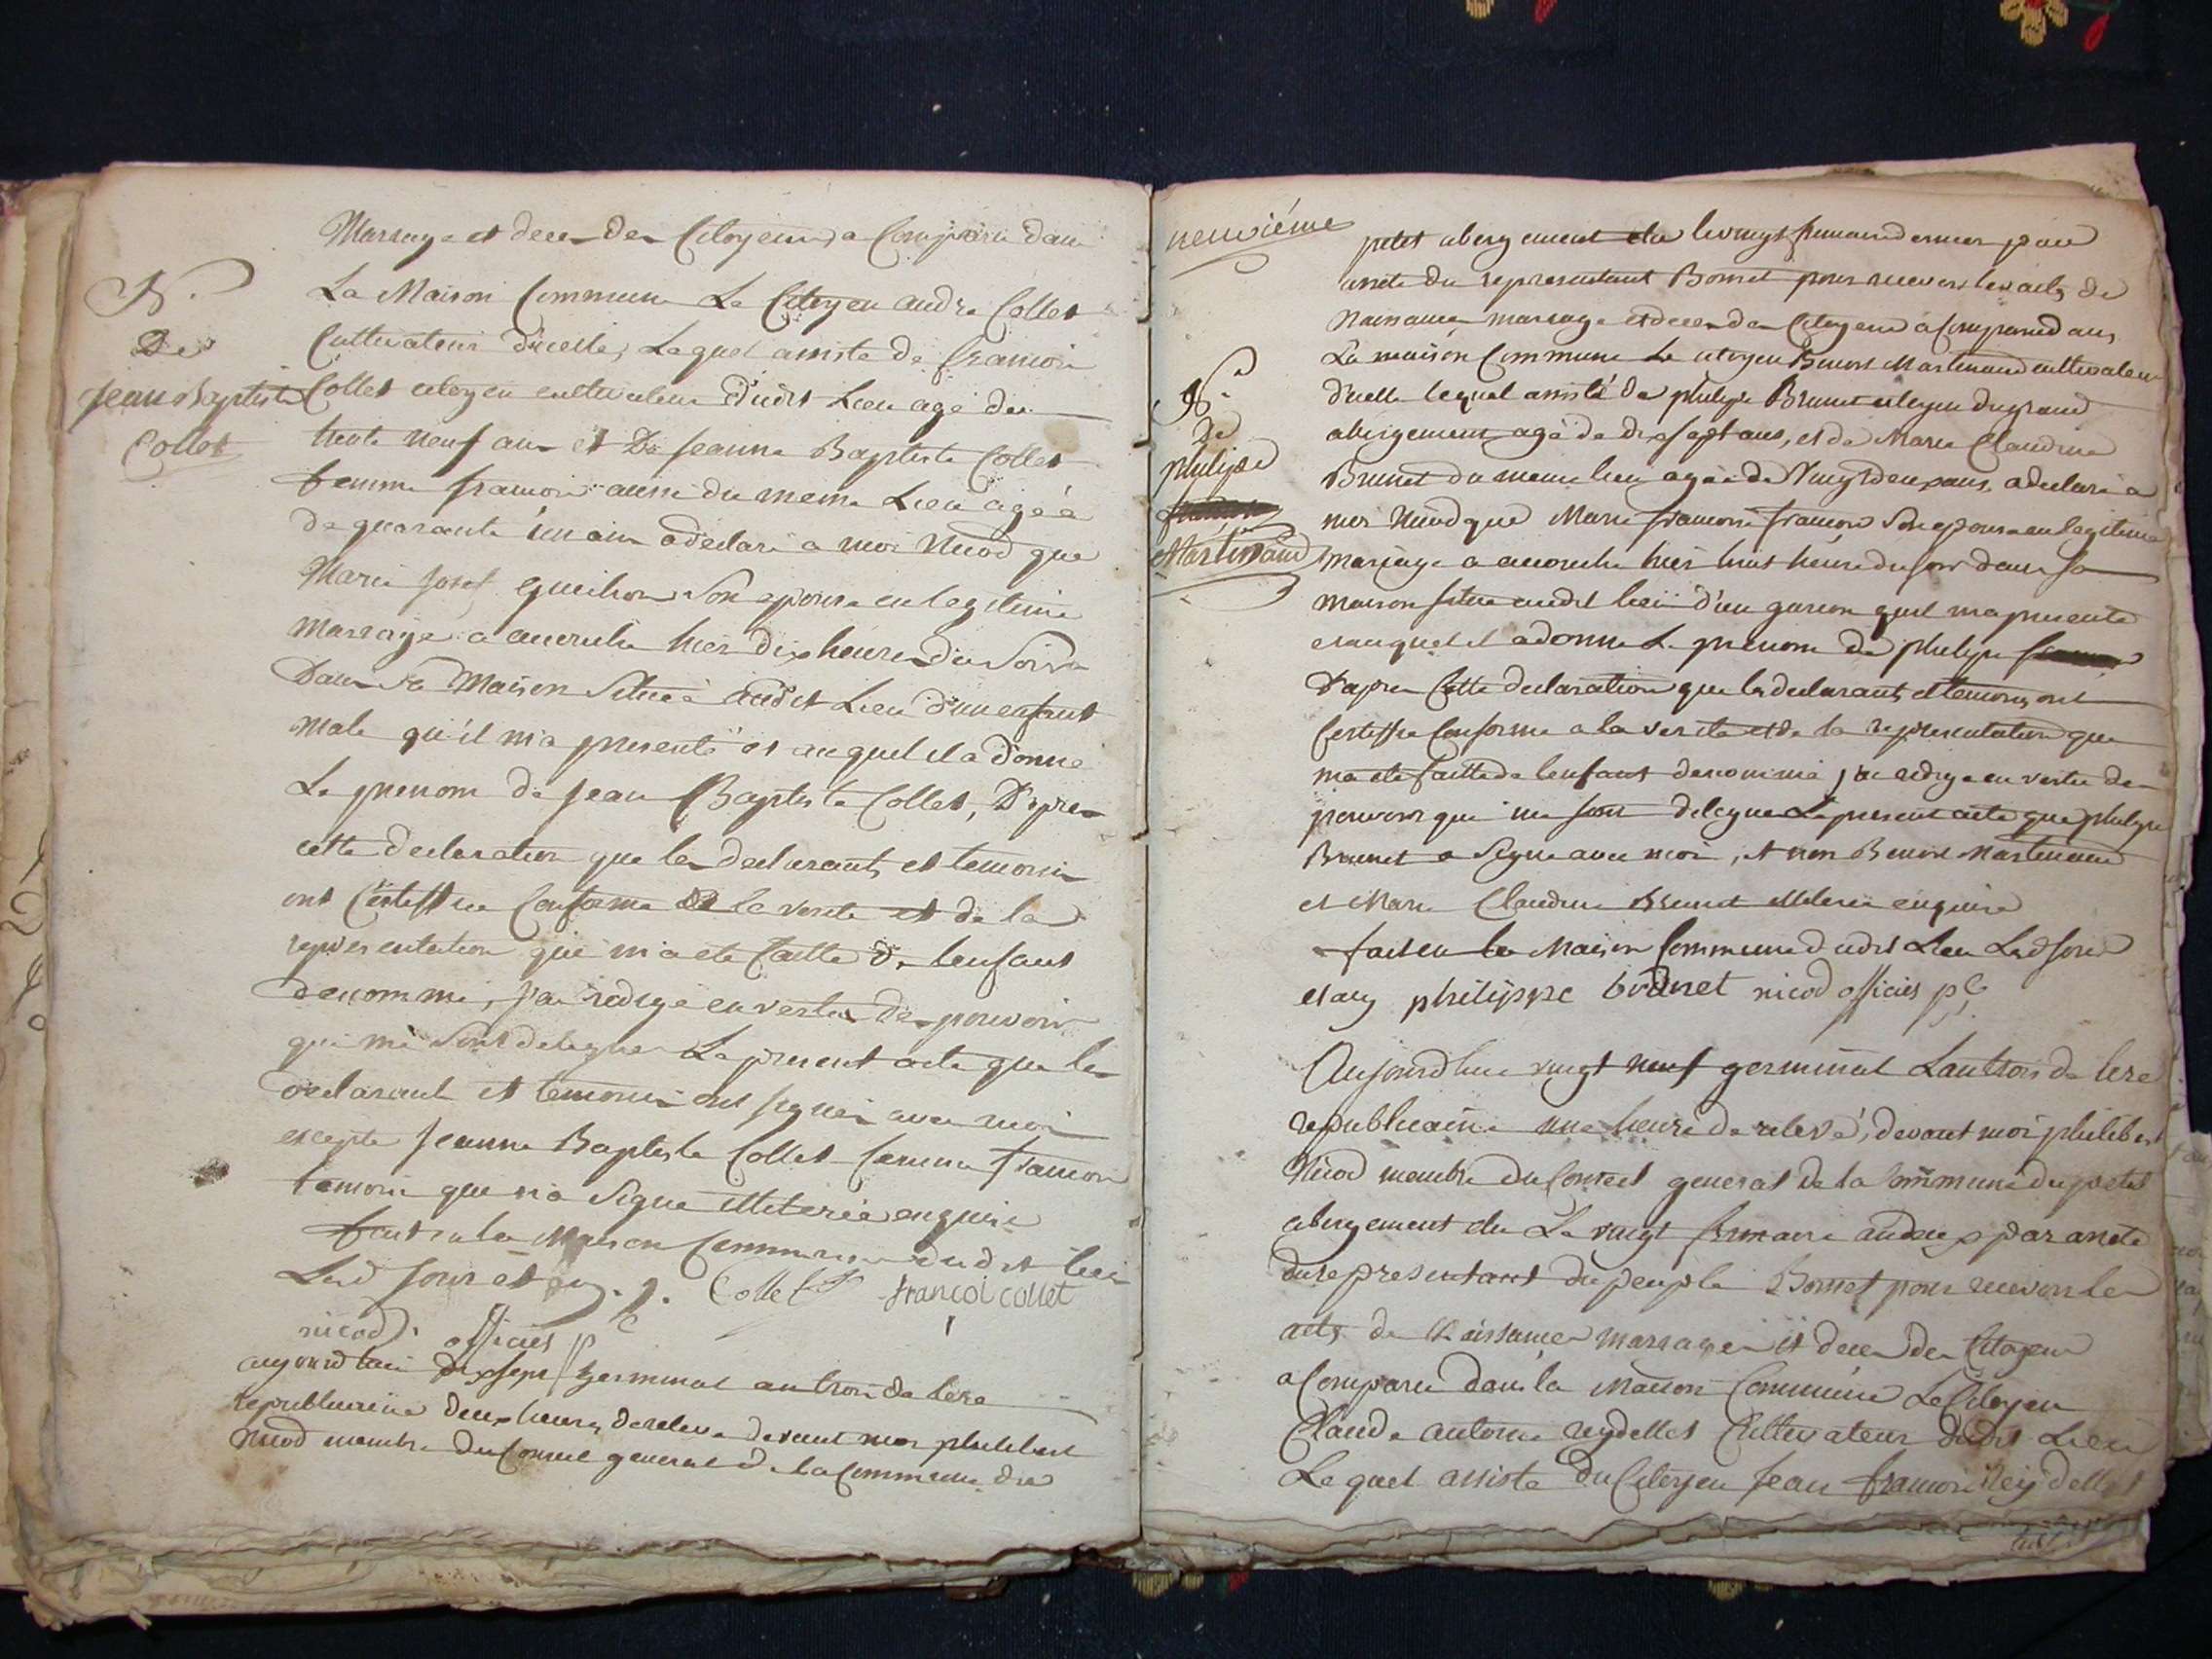 Mariage et deces des Citoyens, a Comparu dans
La Maison Commune Le Citoyen andré Collet
Cultivateur d'icelle, Lequel assisté de francois
Collet citoyen cultivateur dudit Lieu agé de
trente neuf ans et De jeanne Baptiste Collet
femme francois aussi du meme Lieu agéé
de quarante un ans a déclaré a moi Nicod que
Marie josef son epouse en legitime
mariage a accouché hier dix heures du Soir
Dans sa Maison Situéé audit Lieu d'un enfant
Male qu'il m'a presenté et auquel il a donné
Le prenom de jean Baptiste Collet, D'apres
cette declaration que les declarants et temoins
ont Certiffiee Conforme a la verité et de la
representation qui m'a eté faitte de lenfant
denommé, j'ai redigé en vertu des pouvoirs
qui me sont delegues Le present acte que les
declarant et temoins ont signés avec moi
excepté jeanne Baptiste Collet femme francois
temoin que n'a Signé illeteréé enquise
fait en la Maison Commune dudit lieu
Led jour et an. J. Collet francoi collet
nicod officier pc
N.
De
jean Baptiste
Collet
aujourdhui dix sept germinal an trois de l'ére
republicaine deux heures de relevé devant moi philibert
Nicod membre du Conseil general de la Commune du
neuvième
petit abergement elu le vingt frimaire dernier par
arreté du representant Bonnet pour recevoir les acts de
Naissances mariage et deces des Citoyens a comparu dans
La maison Commune Le citoyen Benoit Martinand cultivateur
d'icelle lequel assisté de philipe Brunet citoyen du grand
abergement agé de dix sept ans, et de Marie Claudine
Brunet du meme lieu agéé de Vingt deux ans a declaré a
moi Nicod que Marie francoise francois Son epouse en legitime
Mariage a accouché hier huit heure du soir dans sa
maison située audit lieu d'un garcon quil ma presenté
et auquel il a donné Le prenom de philipe
D'apres Cette declaration que les declarants et temoins ont
Certiffiee Conforme a la verité et de la representation que
ma eté faitte de lenfant denommé j'ai redigé en vertu des
pouvoirs qui me sont delegues Le present acte que philipe
Brunet a Signé avec moi, et non Benoit Martinand
et Marie Claudine Brunet illeterés enquise
fait en la Maison Commune dudit Lieu Led jour
et an philippe brunet nicod officier pc
N.
De
philipe
Martinand
Aujourdhui vingt neuf germinal Lan trois de lere
republicaine une heure de relevé, devant moi philibert
Nicod membre du Conseil general de la Commune du petit
abergement elu Le vingt frimaire an deux par arreté
du representant du peuple Bonnet pour recevoir les
acts de Naissances mariages et deces des Citoyens
a Comparu dans la Maison Commune Le Citoyen
Claude antoine reydellet Cultivateur dudit Lieu
Lequel assisté du Citoyen jean francois Reydellet